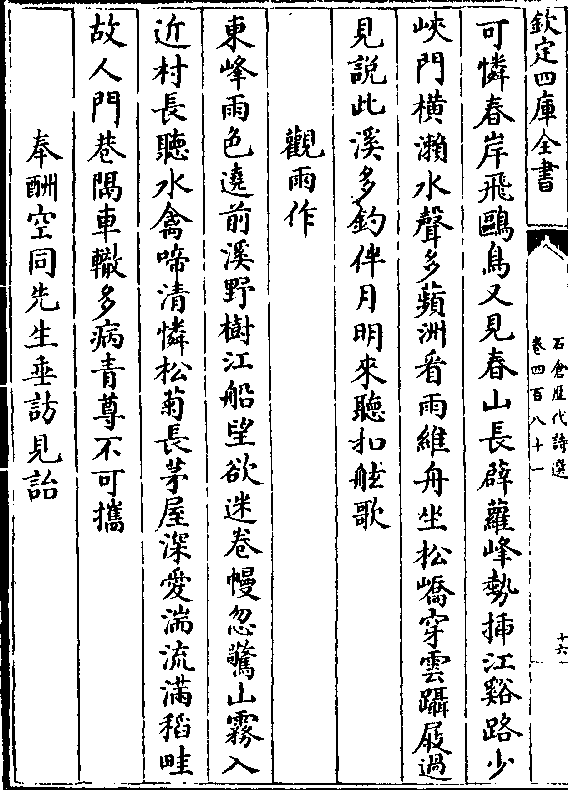 欽定四庫全書
石倉歷代詩選
卷四百八十一
十六
可憐春岸飛鷗鳥又見春山長薜蘿峰勢挿江谿路少
峽門橫瀨水聲多蘋洲看雨維舟坐松嶠穿雲躡屐過
見說此溪多釣伴月明來聽扣舷歌
觀雨作
東峰雨色遶前溪野樹江船望欲迷卷幔忽驚山霧入
近村長聽水禽啼清憐松菊長茅屋深愛湍流滿稻畦
故人門巷隔車轍多病青尊不可攜
奉酬空同先生垂訪見詒